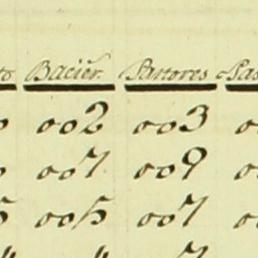 to Bacier. Pastores Pas
002 003
007 009
005 007